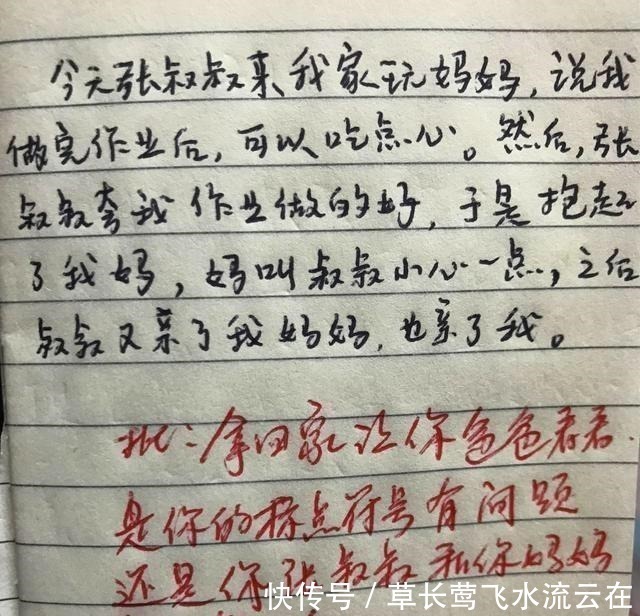 今天张叔叔来我家玩妈妈，说我
做完作业后，可以吃点心。然后，张
叔叔夸我作业做的好，于是抱起
了我妈，妈叫叔叔小心一点，之后
叔叔又亲了我妈妈，也亲了我。
批：拿回家让你爸爸看看.
是你的标点符号有问题
还是你张叔叔和你妈妈
快传号／草长莺飞水流云在